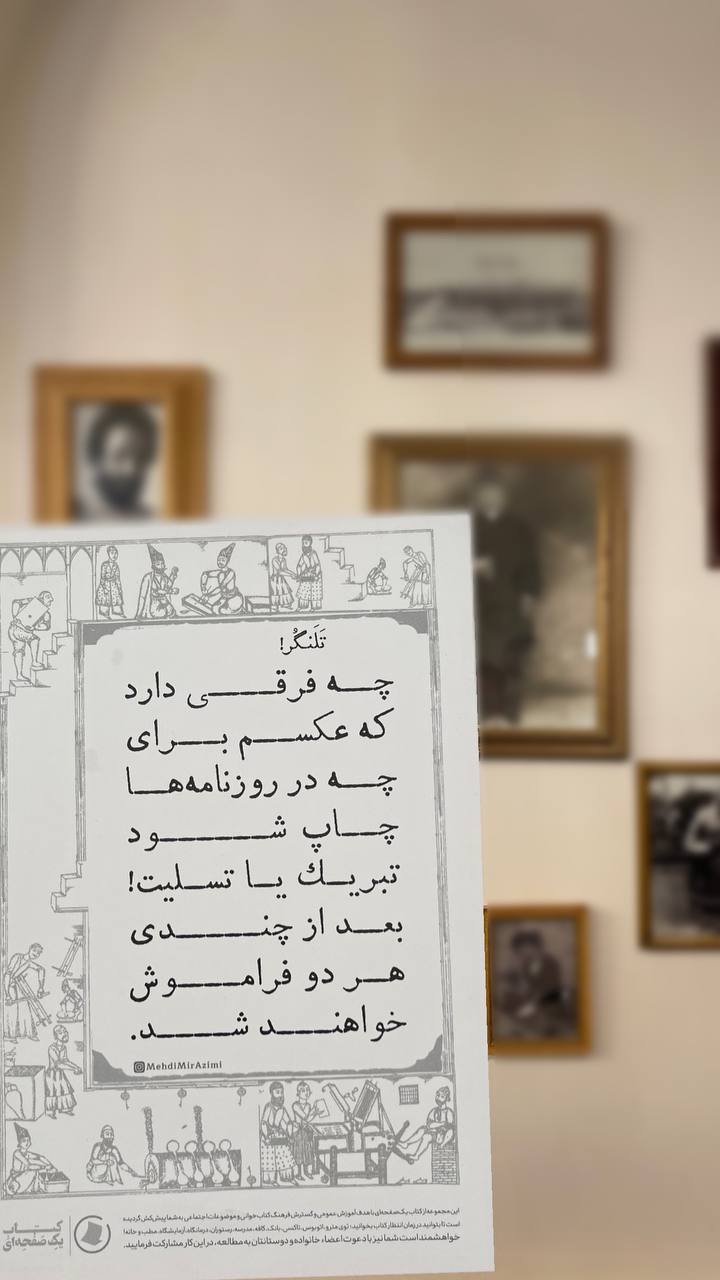 تَلَنگُر!
چه فرقی دارد
که عکسم برای
چه در روزنامه‌ها
چاپ شود
تبریك یا تسلیت!
بعد از چندی
هر دو فراموش
خواهند شد.
MehdiMirAzimi
این مجموعه از کتاب یک‌صفحه‌ای با هدف آموزش عمومی و گسترش فرهنگ کتاب‌خوانی و موضوعات اجتماعی به شما پیش‌کش گردیده
است تا بتوانید در زمان انتظار کتاب بخوانید؛ توی مترو، اتوبوس، تاکسی، بانک، کافه، مدرسه، رستوران، درمانگاه، آزمایشگاه، مطب و خانه!
خواهشمند است شما نیز با دعوت اعضاء خانواده و دوستانتان به مطالعه، در این کار مشارکت فرمایید.
کتاب
یک صَفحِه‌ای